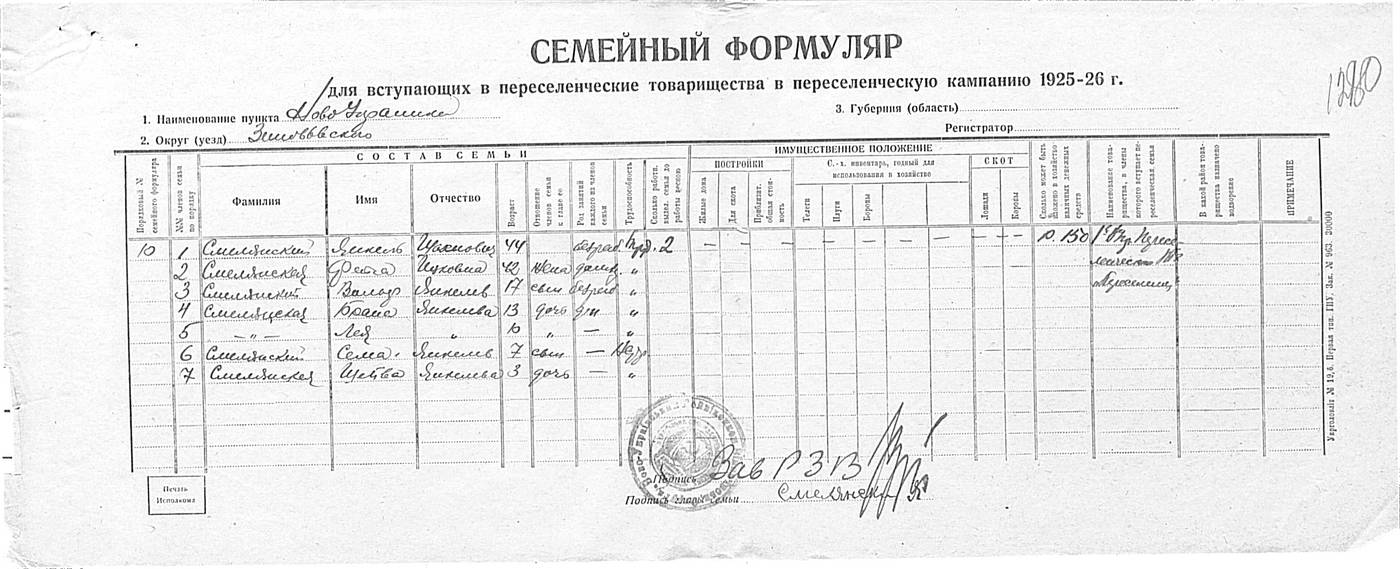 СЕМЕЙНЫЙ ФОРМУЛЯР
для вступающих в переселенческие товарищества в переселенческую кампанию 1925-26 г.
1280
1. Наименование пункта Ново Украинка
3. Губерния (область)
2. Округ (уезд) Зиновьевский
Регистратор
СОСТАВ СЕМЬИ
ИМУЩЕСТВЕННОЕ ПОЛОЖЕНИЕ
ПОСТРОЙКИ
С.-х. инвентарь, годный для использования в хозяйстве
СКОТ
Порядковый № семейного формуляра
№№ членов семьи по порядку
Фамилия
Имя
Отчество
Возраст
Отношение членов семьи к главе ее
Род занятий каждого из членов семьи
Трудоспособность
Сколько работн. вышл. семья до работы весною
Жилые дома
Для скота
Приблизит. общая стоимость
Телеги
Плуги
Бороны
Лошади
Коровы
Сколько может быть вложено в хозяйство наличных денежных средств
Наименование товарищества, в члены которого вступает переселенческая семья
В какой район товарищества назначено водворение
ПРИМЕЧАНИЕ
10 1 Смелянский Янкель 44 безраб. 2 — — — — — — — — р. 150
2 Смелянская 42 жена "
3 Смелянский Янкелев 17 сын безраб "
4 Смелянская Янкелева 13 дочь "
5 — " — Лея " 10 " — "
6 Смелянский Сема Янкелев 7 сын — Нетр.
7 Смелянская Янкелева 3 дочь — "
Печать Исполкома
Подпись Зав РЗВ
Подпись главы семьи Смелянский
Укрголовліт № 19,6. Первая тип. ГПУ. Зак. № 963 20000